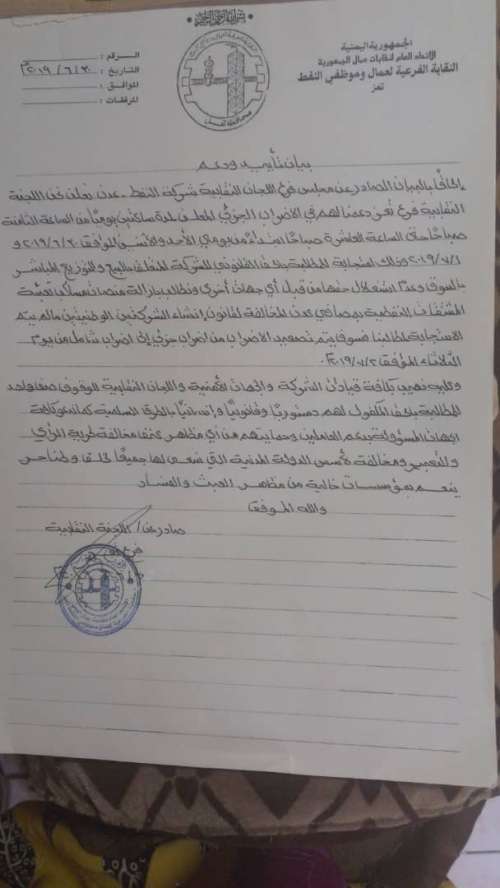 بسم الله الرحمن الرحيم
الجمهورية اليمنية
الاتحاد العام لنقابات عمال الجمهورية
النقابة الفرعية لعمال وموظفي النفط
تعز
الرقم :
التاريخ : ٢٠١٩/٦/٣٠م
الموافق :
المرفقات :
بيان تأييد ودعم
إلحاقاً بالبيان الصادر عن مجلس فرع اللجان النقابية شركة النفط عدن نعلن نحن اللجنة
النقابية فرع تعز دعمنا لهم في الاضراب الجزئي المعلن لمدة ساعتين يومياً من الساعة الثامنة
صباحاً حتى الساعة العاشرة صباحاً ابتداءً من يومي الأحد والأثنين الموافق ٢٠١٩/٦/٣٠ و
٢٠١٩/٧/١ وذلك استجابة للمطالبة بالحق القانوني للشركة المتعلق بالبيع والتوزيع المباشر
بالسوق وعدم استغلال حقها من قبل أي جهات أخرى ونطالب بإزالة منصات تعبئة
المشتقات النفطية بمصافي عدن المخالفة لقانون إنشاء الشركتين الوطنيتين مالم يتم
الاستجابة لمطالبنا فسوف يتم تصعيد الاضراب من اضراب جزئي إلى اضراب شامل من يوم
الثلاثاء الموافق ٢٠١٩/٧/٢م.
وعليه نهيب بكافة قيادات الشركة والجهات الأمنية واللجان النقابية للوقوف صفاً واحد
للمطالبة بحقنا المكفول لهم دستورياً وقانونياً وإنسانياً بالطرق السلمية كما ندعو كافة
الجهات المسؤولة بدعم العاملين وحمايتهم من أي مظاهر عنف مخالفة لحرية الرأي
والتعبير ومخالفة لأسس الدولة المدنية التي نسعى لها جميعاً لخلق
ينعم بمؤسسات خالية من مظاهر العبث والفساد
والله الموفق
صادر عن / اللجنة النقابية
فرع تعز